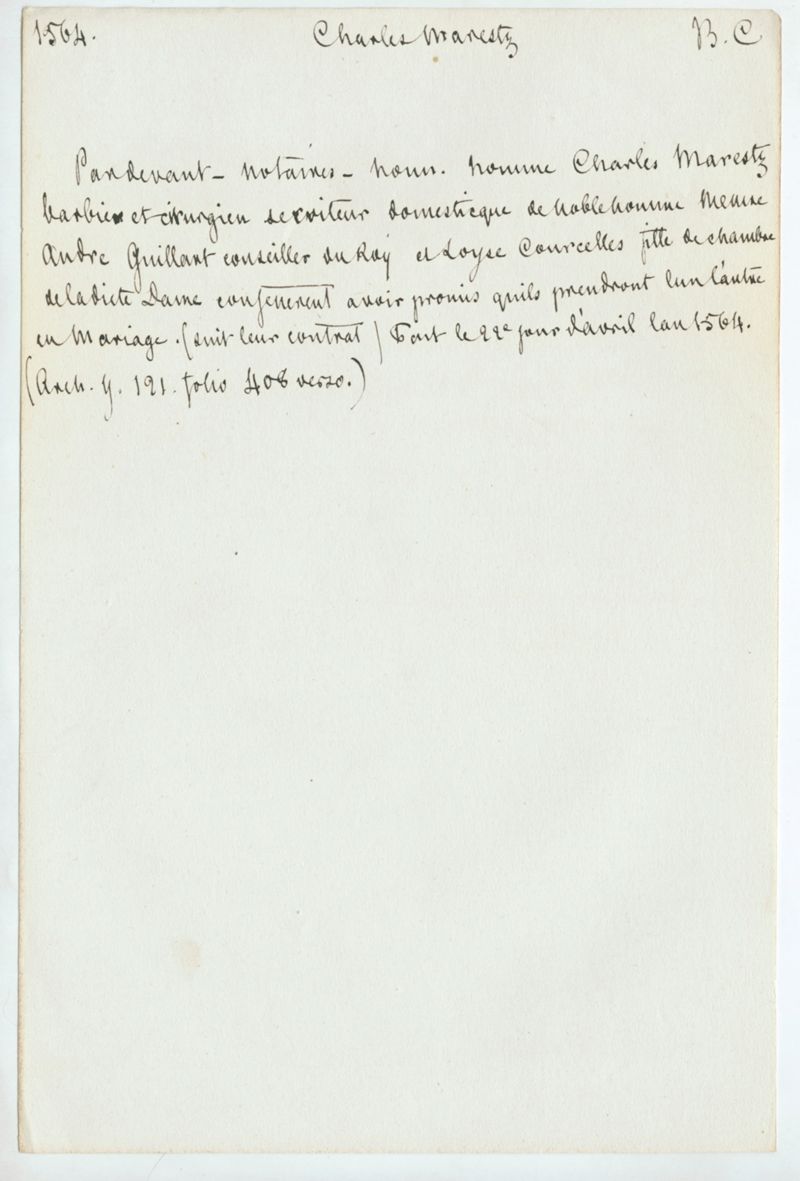 1564. Charles Marestz B. C
Pardevant - notaires - honn. homme Charles Marestz
barbier et cirurgien serviteur domesticque de noble homme Messire
Andre Guillart conseiller du Roy et Loyse Courcelles fille de chambre
de la dicte Dame confesserent avoir promis quils prendront lun l'autre
en Mariage. (suit leur contrat) Fait le 22e jour d'avril lan 1564.
(Arch. Y. 121. folio 408 verso.)